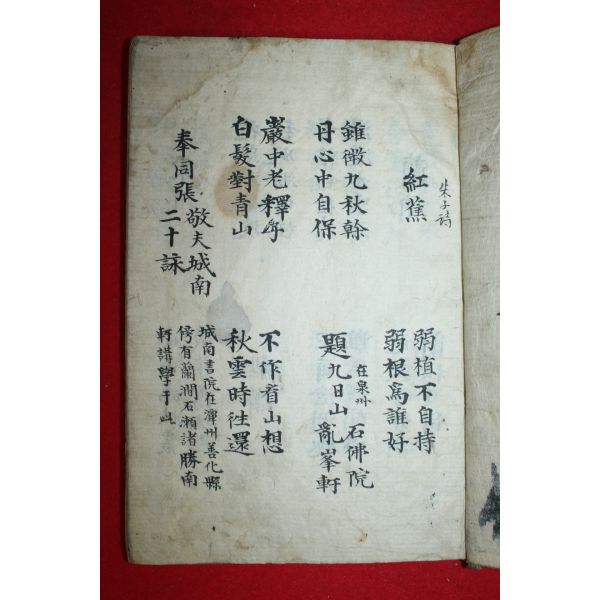 朱子詩
紅蕉
弱植不自持
弱根爲誰好
錐微九秋榦
丹心中自保
在泉州石佛院
題九日山亂峯軒
巖中老釋子
白髮對青山
不作看山想
秋雲時往還
奉同張敬夫城南
二十詠
城南書院在潭州善化縣
傍有蘭澗石瀨諸勝南
軒講學于此